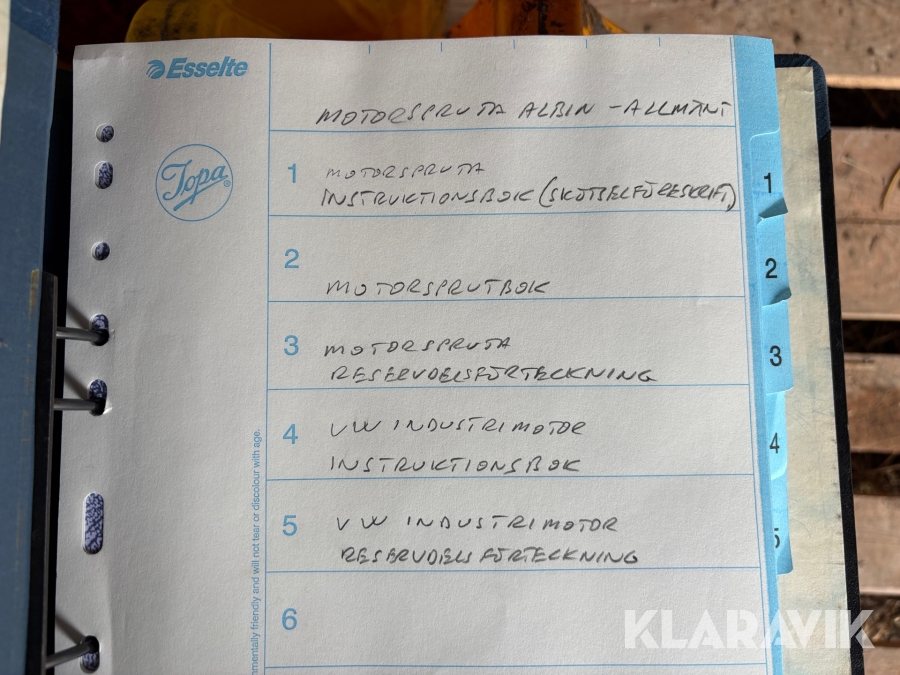 Esselte
MOTORSPRUTA ALBIN - ALLMÄNT
Topa®
1 MOTORSPRUTA
INSTRUKTIONSBOK (SKÖTSELFÖRESKRIFT)
1
2
MOTORSPRUTBOK
2
3 MOTORSPRUTA
RESERVDELSFÖRTECKNING
3
4 VW INDUSTRIMOTOR
INSTRUKTIONSBOK
4
5 VW INDUSTRIMOTOR
RESERVDELSFÖRTECKNING
5
6
mentally friendly and will not tear or discolour with age.
KLARAVIK